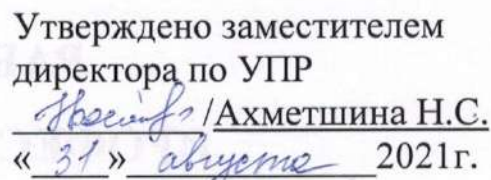 Утверждено заместителем
директора по УПР
/Ахметшина Н.С.
«31» августа 2021г.